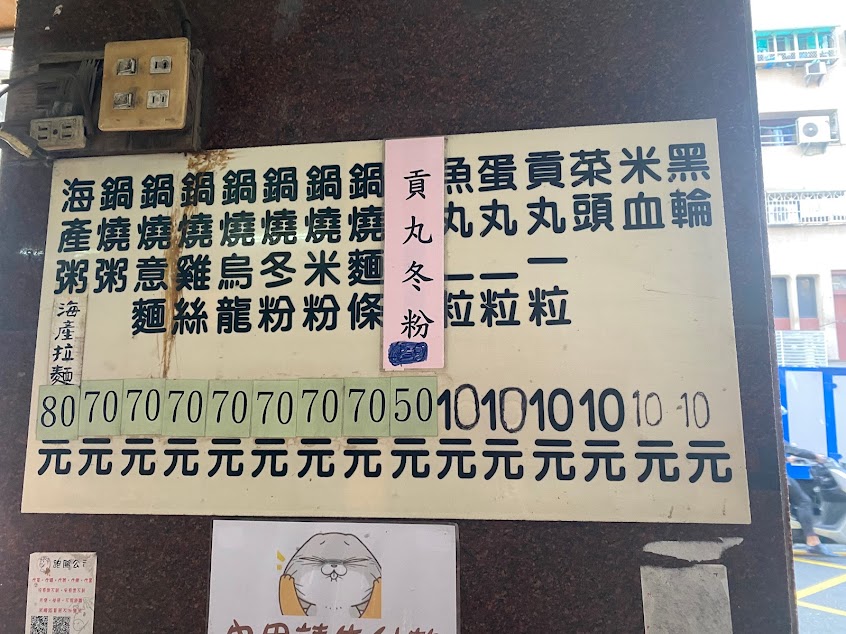 黑輪 10元
米血 10元
菜頭 10元
貢丸一粒 10元
蛋丸一粒 10元
魚丸一粒 10元
貢丸冬粉 50元
鍋燒麵條 70元
鍋燒米粉 70元
鍋燒冬粉 70元
鍋燒烏龍 70元
鍋燒雞絲 70元
鍋燒意麵 70元
鍋燒粥 70元
海產粥 海產拉麵 80元